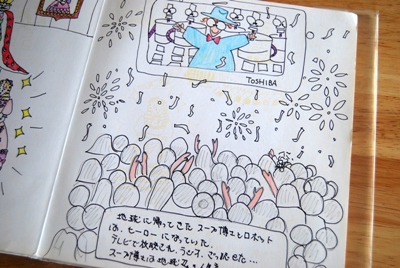 TOSHIBA
地球に帰ってきた スープ博士とロボット
は、ヒーローになっていた。
テレビで放映され、ラジオ、
スープ博士は地球